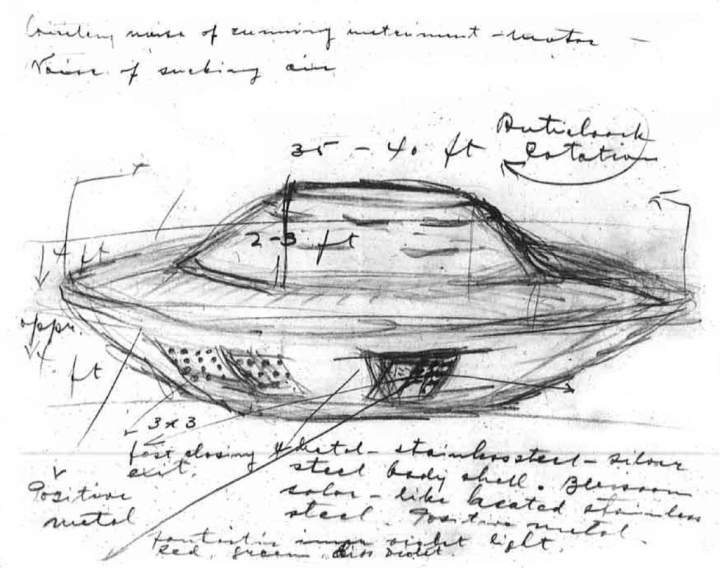 noise of running instrument - motor -
Noise of sucking air
35 - 40 ft
Anticlock
rotation
2-3 ft
4 ft
appr.
4 ft
3x3
fast closing
exit.
Metal - stainless steel - silver
steel body shell.
color - like heated stainless
steel. Positive metal.
Positive
metal
Fantastic violet light,
red, green, violet.